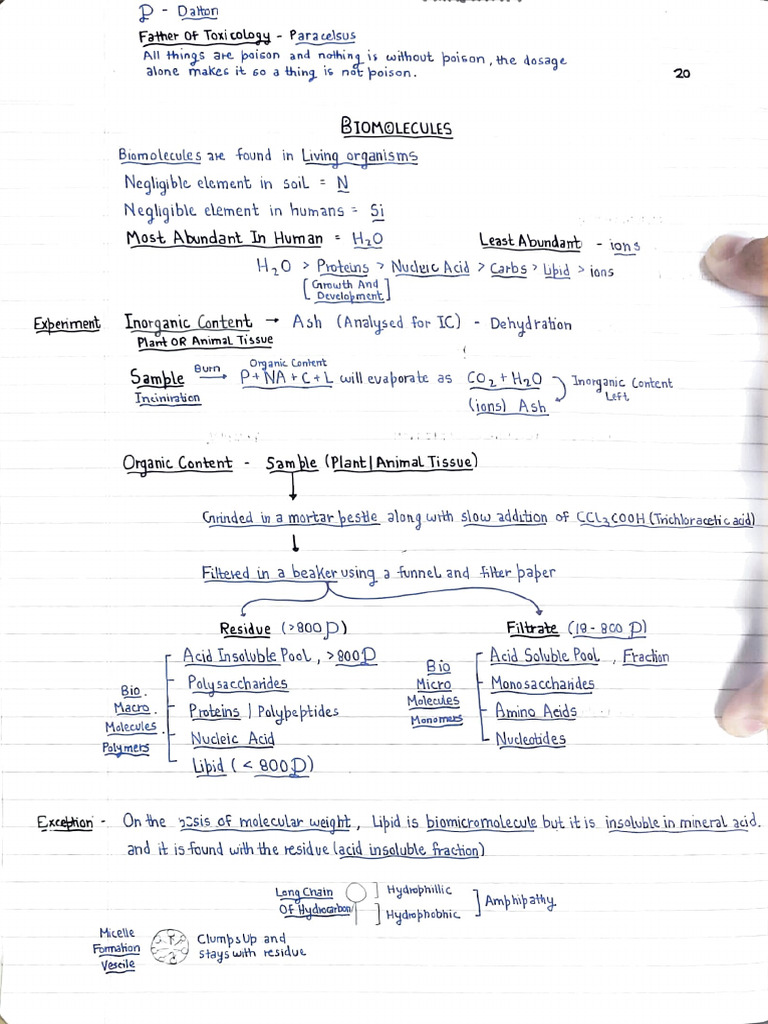 D - Dalton
Father Of Toxicology - Paracelsus
All things are poison and nothing is without poison, the dosage
alone makes it so a thing is not poison.
20
BIOMOLECULES
Biomolecules are found in Living organisms
Negligible element in soil = N
Negligible element in humans = Si
Most Abundant In Human = H2O
Least Abundant - ions
H2O > Proteins > Nucleic Acid > Carbs > Lipid > ions
[Growth And
Development]
Experiment Inorganic Content → Ash (Analysed for IC) - Dehydration
Plant OR Animal Tissue
Sample Burn → Organic Content P+NA+C+L will evaporate as CO2 + H2O Inorganic Content
Inciniration (ions) Ash Left
Organic Content - Samble (Plant/Animal Tissue)
↓
Grinded in a mortar pestle along with slow addition of CCL3COOH (Trichloracetic acid)
↓
Filtered in a beaker using a funnel and filter paper
Residue (>800D)
Acid Insoluble Pool, >800D
Polysaccharides
Proteins / Polypeptides
Nucleic Acid
Lipid (< 800D)
Bio.
Macro.
Molecules.
Polymers
Filtrate (18 - 800 D)
Acid Soluble Pool, Fraction
Monosaccharides
Amino Acids
Nucleotides
Bio
Micro
Molecules
Monomers
Exception - On the basis of molecular weight, Lipid is biomicromolecule but it is insoluble in mineral acid.
and it is found with the residue (acid insoluble fraction)
Long Chain
Of Hydrocarbon
] Hydrophillic
] Hydrophobhic
] Amphipathy
Micelle
Formation
Vescile
Clumps Up and
stays with residue